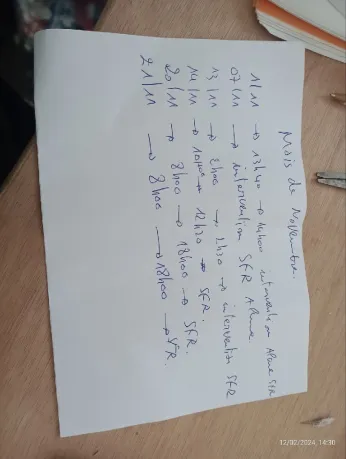 Mois de Novembre
1/11 → 13h40 → 14h00 intervention Alarme SFR
07/11 → intervention SFR Alarme
13/11 → 2h00 → 2h30 → intervention SFR
14/11 → 10h00 → 12h20 → SFR.
20/11 → 8h00 → 18h00 → SFR.
21/11 → 8h00 → 18h00 → SFR.
12/02/2024, 14:30